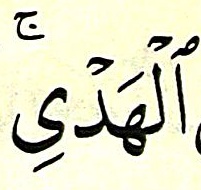 ٱلْهَدْيِۚ